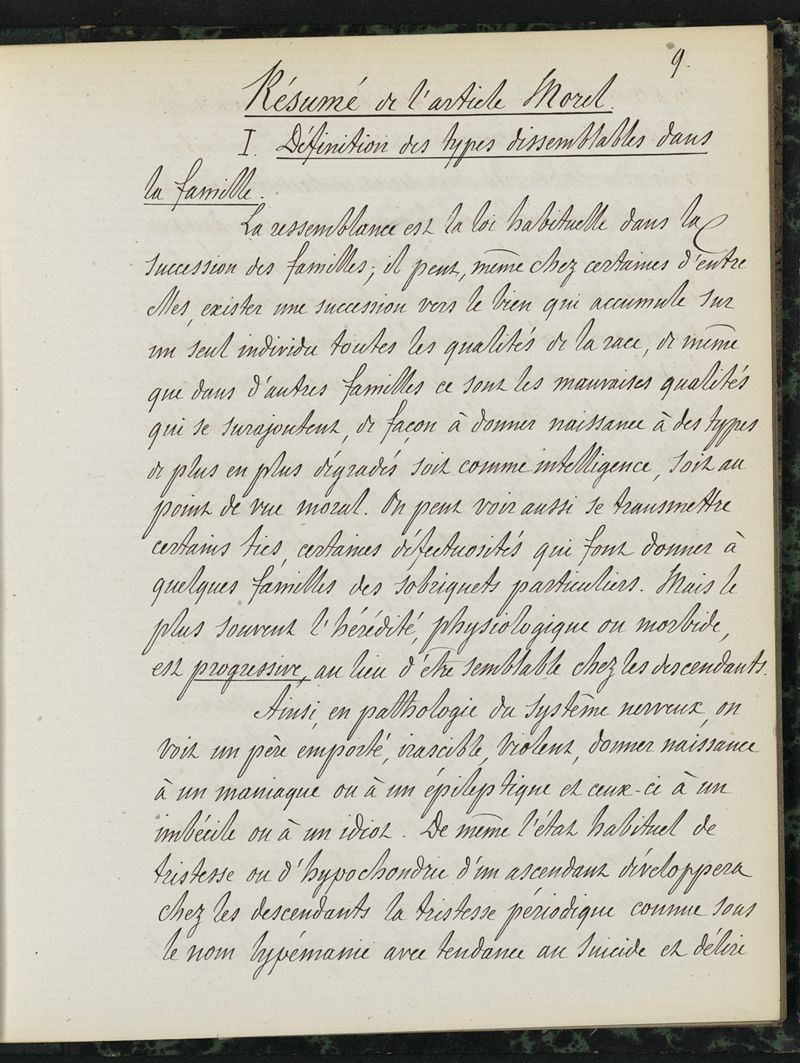 9.
Résumé de l'article Morel.
I. Définition des types dissemblables dans
la famille.
La ressemblance est la loi habituelle dans la
succession des familles; il peut, même chez certaines d'entre
elles, exister une succession vers le bien qui accumule sur
un seul individu toutes les qualités de la race, de même
que dans d'autres familles ce sont les mauvaises qualités
qui se surajoutent, de façon à donner naissance à des types
de plus en plus dégradés soit comme intelligence, soit au
point de vue moral. On peut voir aussi se transmettre
certains tics, certaines défectuosités qui font donner à
quelques familles des sobriquets particuliers. Mais le
plus souvent l'hérédité, physiologique ou morbide,
est progressive, au lieu d'être semblable chez les descendants.
Ainsi, en pathologie du système nerveux, on
voit un père emporté, irascible, violent, donner naissance
à un maniaque ou à un épileptique et ceux-ci à un
imbécile ou à un idiot. De même l'état habituel de
tristesse ou d'hypochondrie d'un ascendant développera
chez les descendants la tristesse périodique connue sous
le nom lypémanie avec tendance au suicide et délire